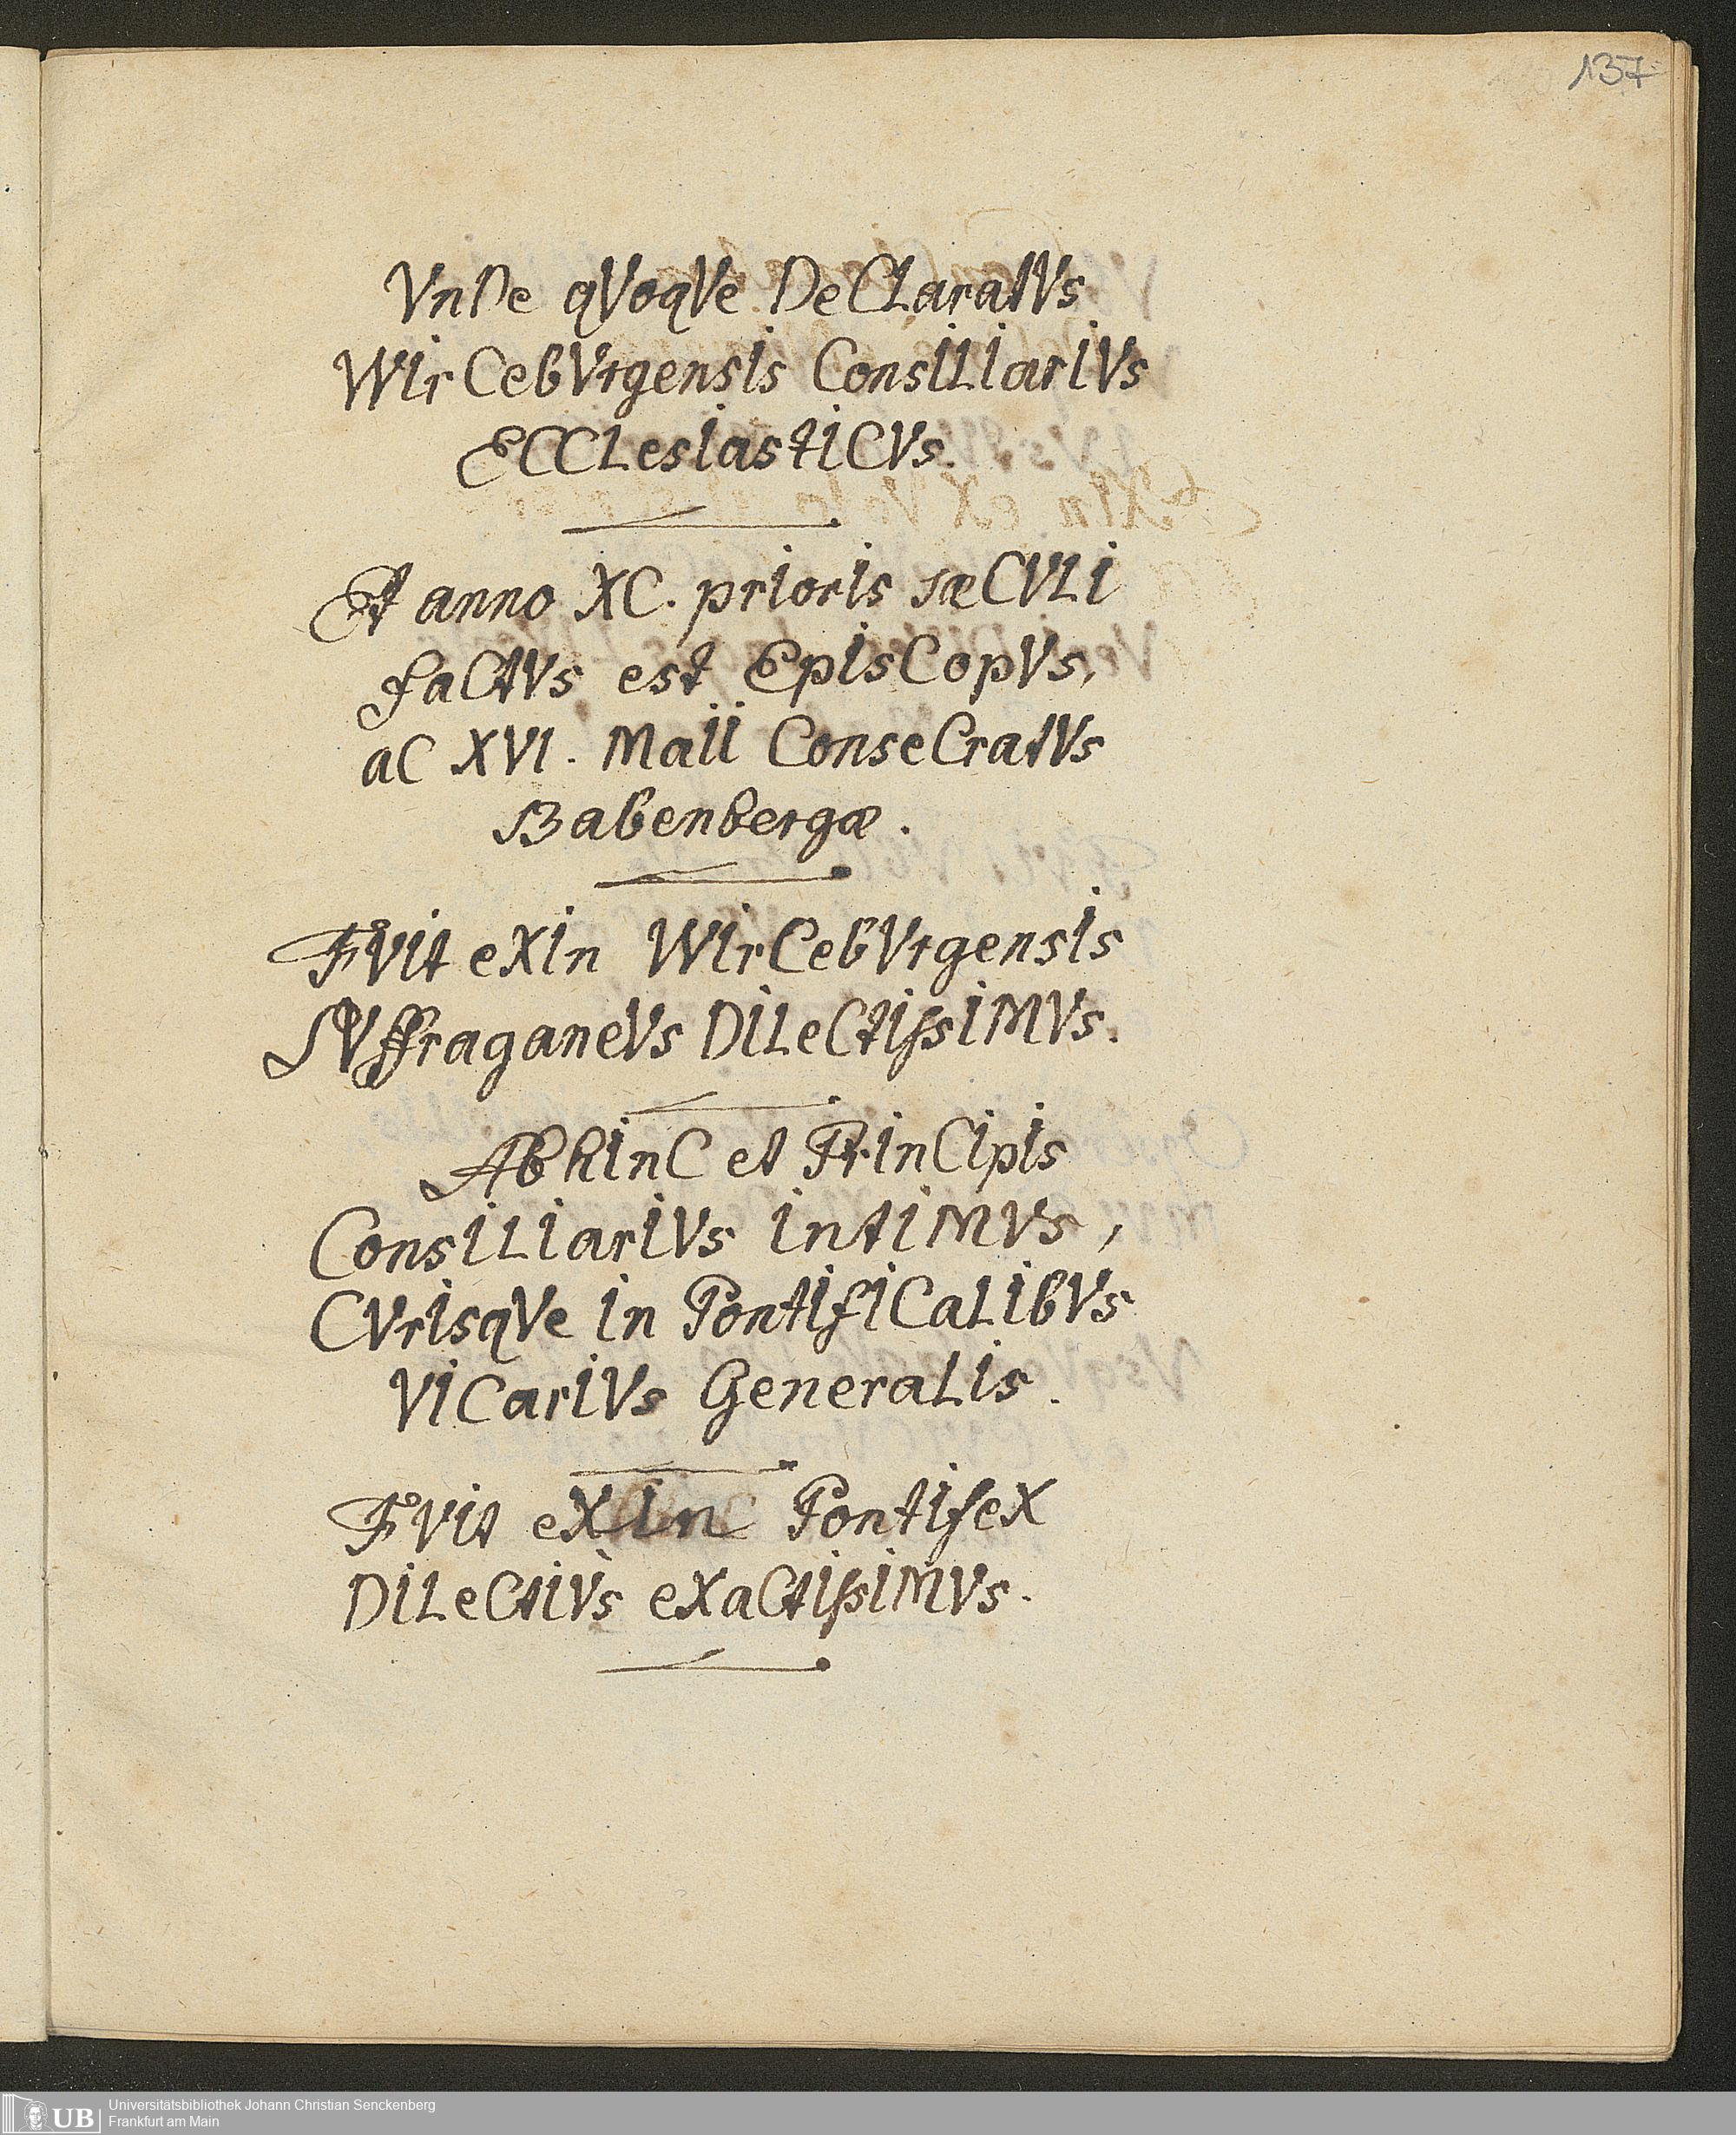 137
VnDe qVoqVe DeCLaratVs
WIrCebVrgensIs ConsILIarIVs
ECCLesIastICVs.
Et anno XC. prIorIs sæCVLI
faCtVs est EpIsCopVs,
aC XVI. MaII ConseCratVs
Babenbergæ.
FVIt eXIn WIrCebVrgensIs
SVffraganeVs DILeCtIssIMVs.
AbhInC et PrInCIpIs
ConsILIarIVs IntIMVs,
CVrIsqVe In PontIfICaLIbVs
VICarIVs GeneraLIs.
FVIt eXIn PontIfeX
DILeCtIVs eXaCtIssIMVs.
UB
Universitätsbibliothek Johann Christian Senckenberg
Frankfurt am Main